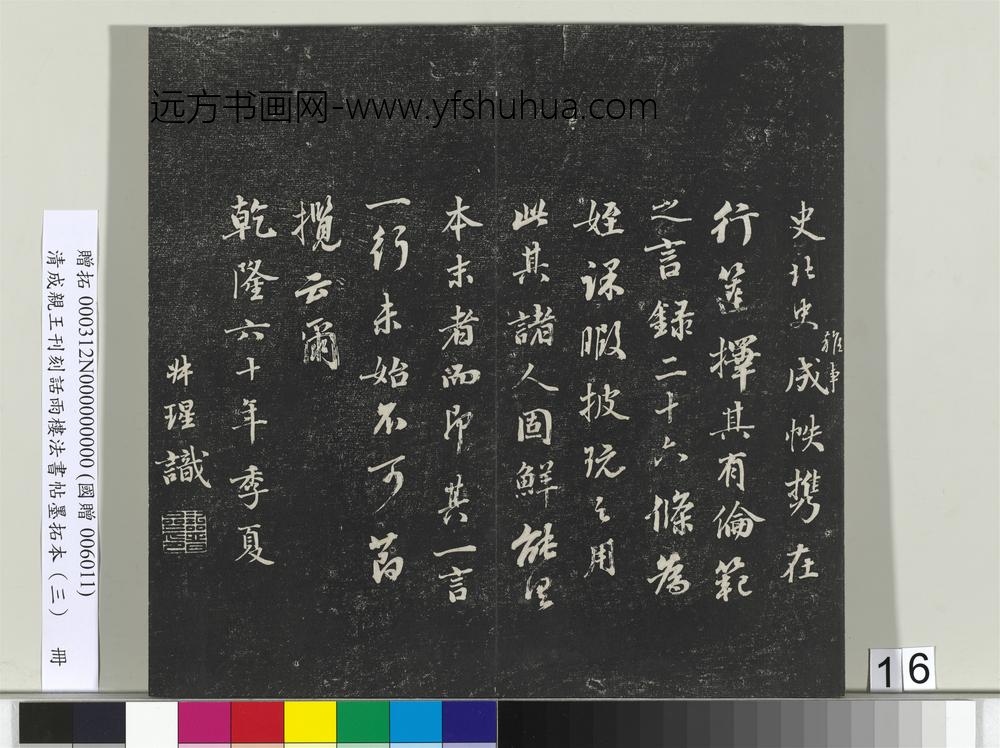 远方书画网-www.yfshuhua.com
史北史雜事成帙携在
行篋擇其有倫範
之言録二十六條為
姪課暇披玩之用
此其諸人固鮮能澤
本末者而即其一言
一行未始不可節
攬云爾
乾隆六十年季夏
瑆識
贈拓 000312N000000000 (國贈 006011)
清成親王刊刻話雨樓法書帖墨拓本(三) 冊
16